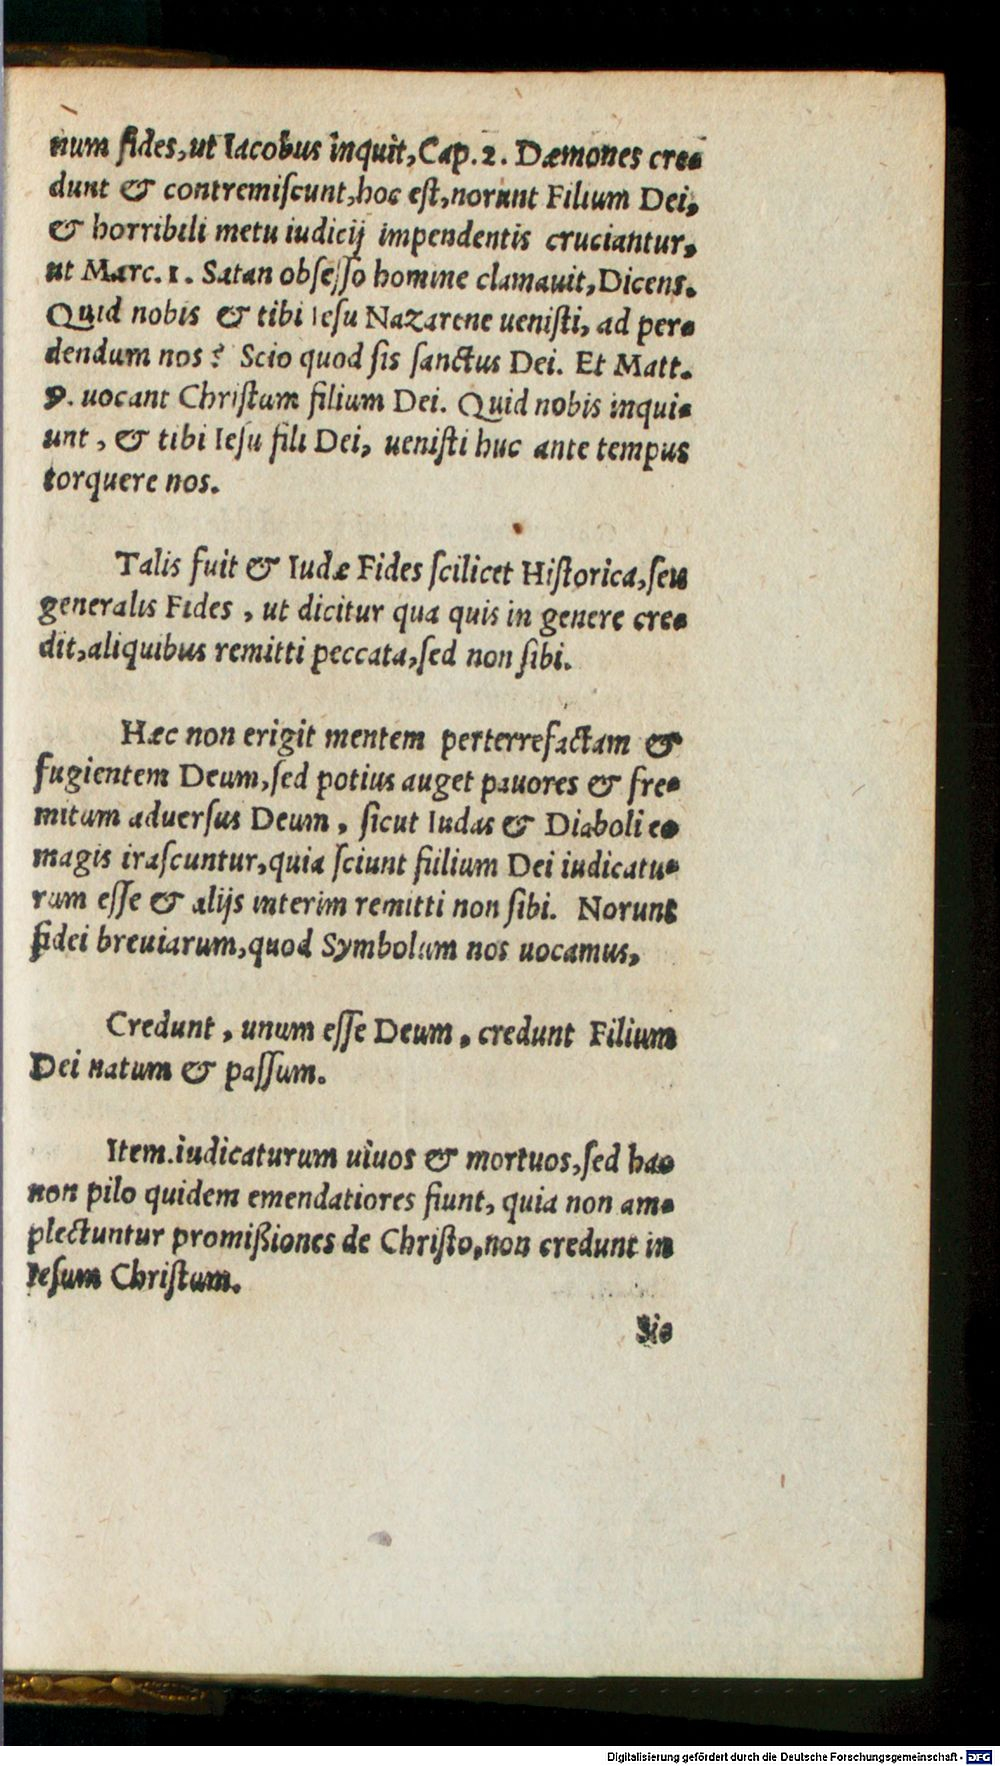 num fides, ut Iacobus inquit, Cap. 2. Dæmones cre⸗
dunt & contremiſcunt, hoc eſt, norunt Filium Dei,
& horribili metu iudicij impendentis cruciantur,
ut Marc. 1. Satan obſeſſo homine clamauit, Dicens.
Quid nobis & tibi Ieſu Nazarene ueniſti, ad per⸗
dendum nos? Scio quod ſis ſanctus Dei. Et Matt.
9. uocant Chriſtum filium Dei. Quid nobis inqui⸗
unt, & tibi Ieſu fili Dei, ueniſti huc ante tempus
torquere nos.
Talis fuit & Iudæ Fides ſcilicet Hiſtorica, ſeu
generalis Fides, ut dicitur qua quis in genere cre⸗
dit, aliquibus remitti peccata, ſed non ſibi.
Hæc non erigit mentem perterrefactam &
fugientem Deum, ſed potius auget pauores & fre⸗
mitum aduerſus Deum, ſicut Iudas & Diaboli eo
magis iraſcuntur, quia ſciunt fiilium Dei iudicatu⸗
rum eſſe & alijs interim remitti non ſibi. Norunt
fidei breuiarum, quod Symbolum nos uocamus,
Credunt, unum eſſe Deum, credunt Filium
Dei natum & paſſum.
Item. iudicaturum uiuos & mortuos, ſed hac
non pilo quidem emendatiores fiunt, quia non am⸗
plectuntur promißiones de Chriſto, non credunt in
Ieſum Chriſtum.
Sic
Digitalisierung gefördert durch die Deutsche Forschungsgemeinschaft - DFG